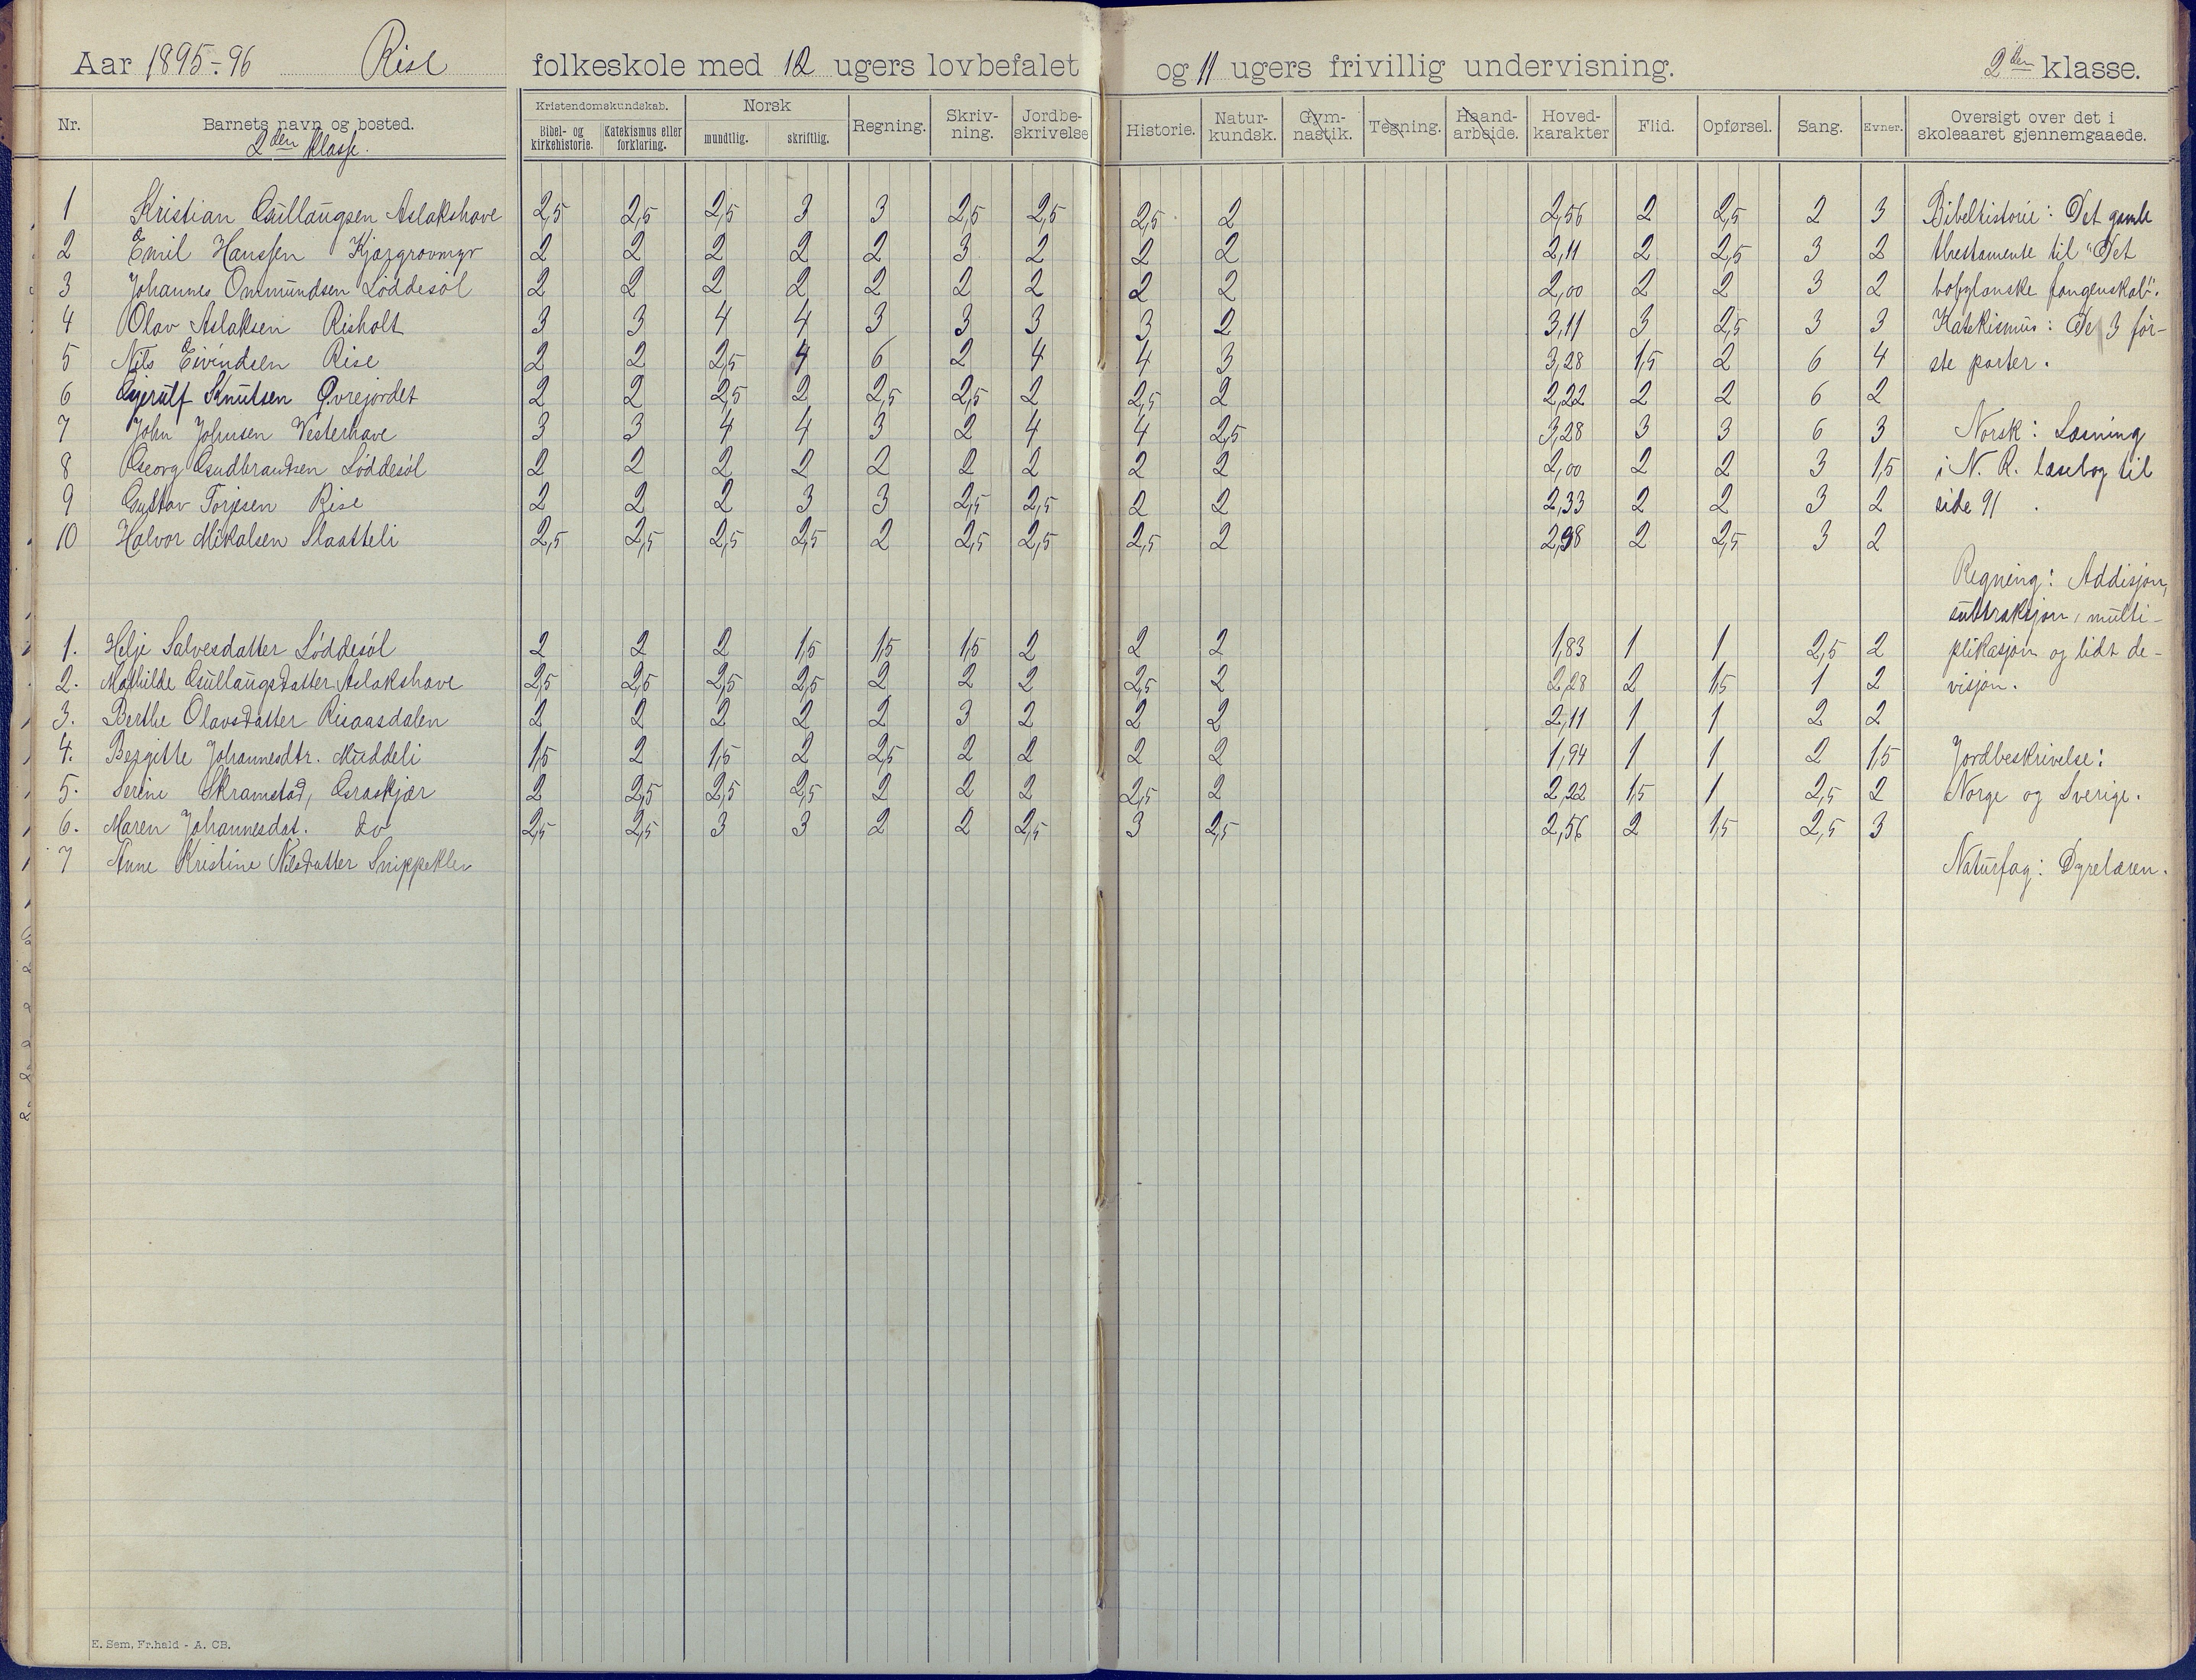 Aar 1895-96 Rise folkeskole med 12 ugers lovbefalet og 11 ugers frivillig undervisning. 2den klasse.
Nr. Barnets navn og bosted. Kristendomskundskab. Bibel- og kirkehistorie. Katekismus eller forklaring. Norsk mundtlig. skriftlig. Regning. Skriv-ning. Jordbe-skrivelse Historie. Natur-kundsk. Gym-nastik. Tegning. Haand-arbeide. Hoved-karakter Flid. Opførsel. Sang. Evner. Oversigt over det i skoleaaret gjennemgaaede.
2den klasse.
1 Kristian Gullaugsen Aslakshave 2,5 2,5 2,5 3 3 2,5 2,5 2,5 2 2,56 2 2,5 2 3 Bibelhistorie: Det gamle
2 Emil Hanssen Kjærgrovmyr 2 2 2 2 2 3 2 2 2 2,11 2 2,5 3 2 testamente til "Det
3 Johannes Ommundsen Løddesøl 2 2 2 2 2 2 2 2 2 2,00 2 2 3 2 babylonske fangenskab".
4 Olav Aslaksen Risholt 3 3 4 4 3 3 3 3 2 3,11 3 2,5 3 3 Katekismus: De 3 før-
5 Nils Eivindsen Rise 2 2 2,5 4 6 2 4 4 3 3,28 1,5 2 6 4 ste parter.
6 Gjerulf Knutsen Øvrejordet 2 2 2,5 2 2,5 2,5 2 2,5 2 2,22 2 2 6 2
7 John Johnsen Vesterhave 3 3 4 4 3 2 4 4 2,5 3,28 3 3 6 3 Norsk: Læsning
8 Georg Gudbrandsen Løddesøl 2 2 2 2 2 2 2 2 2 2,00 2 2 3 1,5 i N. R. læsebog til
9 Gustav Torjesen Rise 2 2 2 3 3 2,5 2,5 2 2 2,33 2 2 3 2 side 91.
10 Halvor Mikalsen Slaatteli 2,5 2,5 2,5 2,5 2 2,5 2,5 2,5 2 2,38 2 2,5 3 2
Regning: Addisjon,
suttraksjon, multi-
1. Helje Salvesdatter Løddesøl 2 2 2 1,5 1,5 1,5 2 2 2 1,83 1 1 2,5 2 plikasjon og lidt de-
2. Mathilde Gullaugsdatter Aslakshave 2,5 2,5 2,5 2,5 2 2 2 2,5 2 2,28 2 1,5 1 2 visjon.
3. Berthe Olavsdatter Risaasdalen 2 2 2 2 2 3 2 2 2 2,11 1 1 2 2
4. Bergitte Johannesdtr. Muddeli 1,5 2 1,5 2 2,5 2 2 2 2 1,94 1 1 2 1,5 Jordbeskrivelse:
5. Serine Skramstad, Graskjær 2 2,5 2,5 2,5 2 2 2 2,5 2 2,22 1,5 1 2,5 2 Norge og Sverige.
6. Maren Johannesdat. do 2,5 2,5 3 3 2 2 2,5 3 2,5 2,56 2 1,5 2,5 3
7 Anne Kristine Nilsdatter Snippeklev Naturfag: Dyrelæren.
E. Sem, Fr.hald - A. CB.